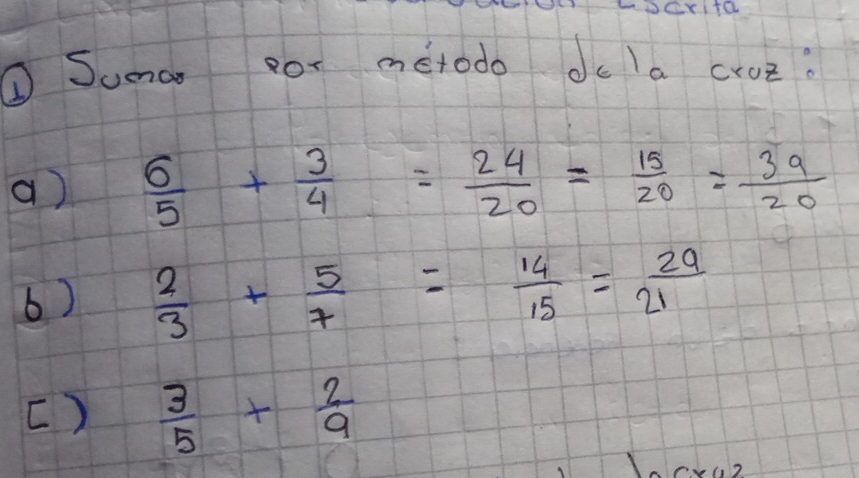 Escrita
① Sumar por método de la cruz:
a) 6/5 + 3/4 = 24/20 = 15/20 = 39/20
b) 2/3 + 5/7 = 14/15 = 29/21
c) 3/5 + 2/9
la cruz